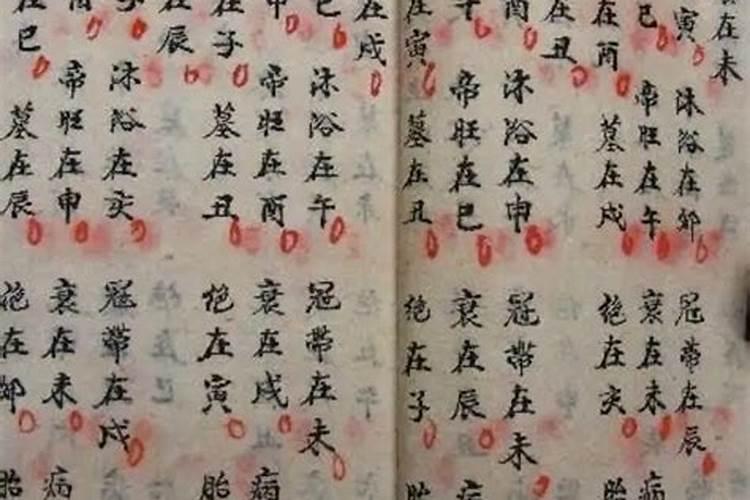 在未
寅
巳
在酉
在丑
酉
在寅
沐浴在卯
帝旺在午
墓在戌
沐浴在申
帝旺在巳
墓在丑
冠帶在辰
衰在未
絕在亥
冠帶在未
衰在辰
絕在子
病
胎
病
胎
在戌
巳
申
在子
在辰
子
在巳
沐浴在午
帝旺在酉
墓在丑
沐浴在亥
帝旺在申
墓在辰
冠帶在未
衰在戌
絕在寅
冠帶在戌
衰在未
絕在卯
病
胎
病
胎